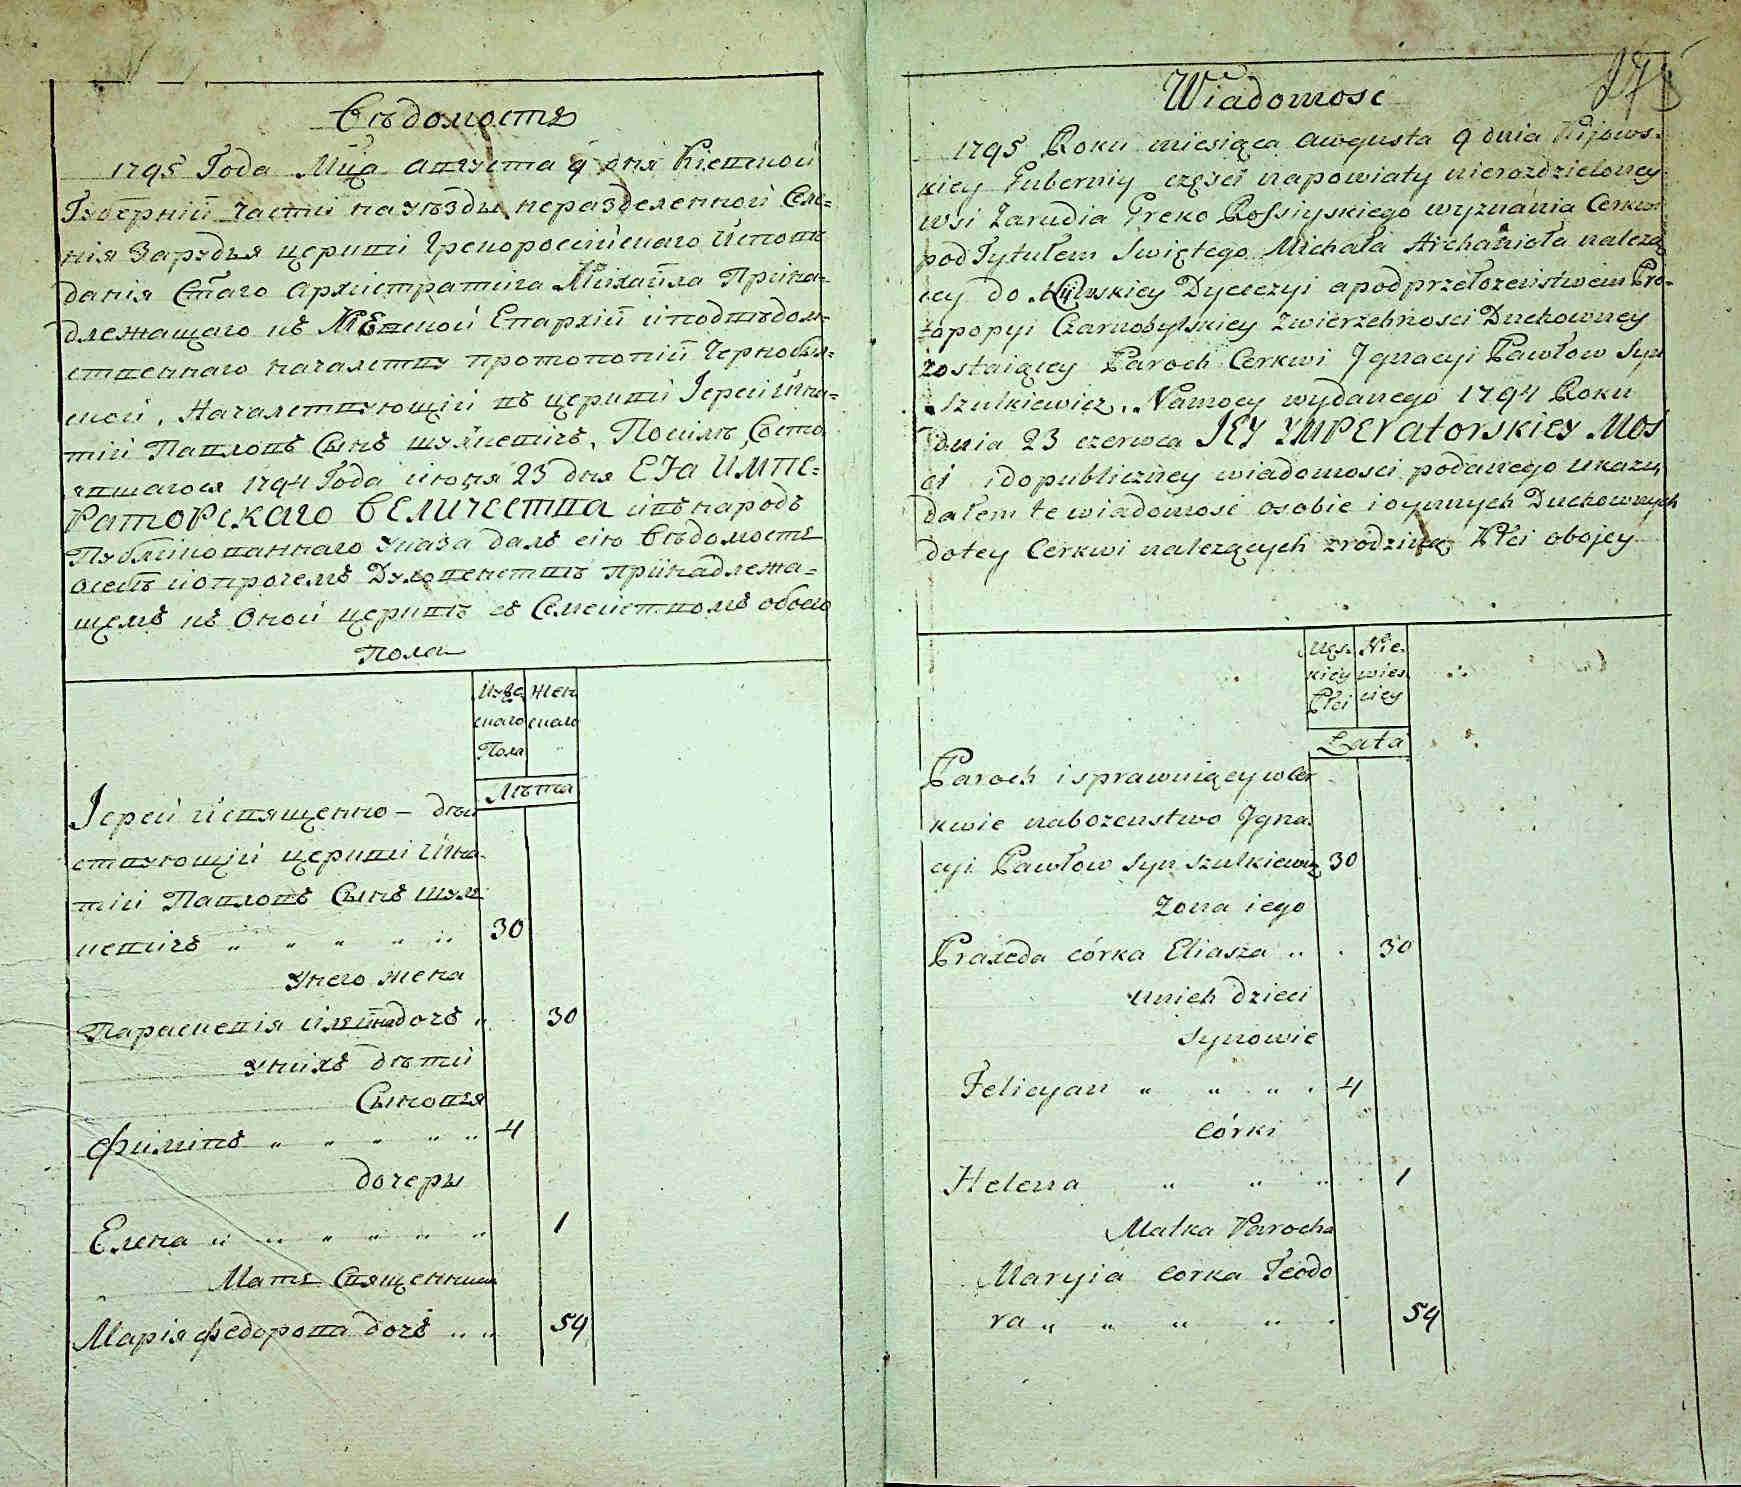 Вѣдомостъ
1795 Года Мца Августа 9 дня Кіевской
Губерніи части на уѣзды неразделенной Селе=
нія Зарудья церкви Грекороссійскаго Испове
данія Стаго Архистратига Михаила Прина=
длежащаго къ Кіевской Епархіи и подвѣдом=
ственнаго началству протопопіи Чернобыл=
ской, Началствующій въ церкви Іерей Игна=
тій Павловъ Сынъ Шулкевичъ, По силѣ Состо
явшагося 1794 Года июня 23 дня ЕЯ ИМПЕ=
РАТОРСКАГО ВЕЛИЧЕСТВА и въ народъ
Публикованнаго Указа далъ сію Вѣдомость
осебѣ и опрочемъ Духовенствѣ принадлежа=
щемъ къ Оной церквѣ съ Семействомъ обоего
Пола
Муже Жен
скаго скаго
Пола
Лѣта
Іерей и священно – дѣй
ствующій церкви Игна
тій Павловъ Сынъ Шул
кевичъ " " " " " 30
Унего жена
Параскевія Ильина дочь " 30
Унихъ дѣти
Сыновья
Филипъ " " " " " 4
дочеры
Елена " " " " " " 1
Мать Священника
Марія Федорова дочь " " 54
Wiadomość
1795 Roku miesiąca Awgusta 9 dnia Kijows.
kiey Guberniy części napowiaty nierozdzieloney
wsi Zarudia Greko Rossiyskiego wyznania Cerkwi
pod Tytułem Swiętego Michała Archanioła należą
cey do Kijowskiey Dyecezyi a pod przełożeństwem Pro-
topopyi Czarnobylskiey Zwierzchności Duchowney
zostaiącey Paroch Cerkwi Jgnacyi Pawłow Syn
Szulkiewicz. Namocy wydanego 1794 Roku
dnia 23 czerwca JEY YMPERatorskiey Moś
ci i do publiczney wiadomości podanego ukazu,
dałem te wiadomość osobie i oynnych Duchownych
dotey Cerkwi należących z rodziną Płci obojey
Męs- Nie.
kiey wies
Płci ciey
Lata
Paroch i sprawuiący w Cer
kwie nabożeństwo Jgna.
cyi Pawłow Syn Szulkiewicz 30
Żona iego
Praxeda córka Eliasza " . 30
unich dzieci
Synowie
Felicyan " " " . 4
Córki
Helena " " " . 1
Matka Parocha
Maryia Corka Teodo
ra " " " " . 54